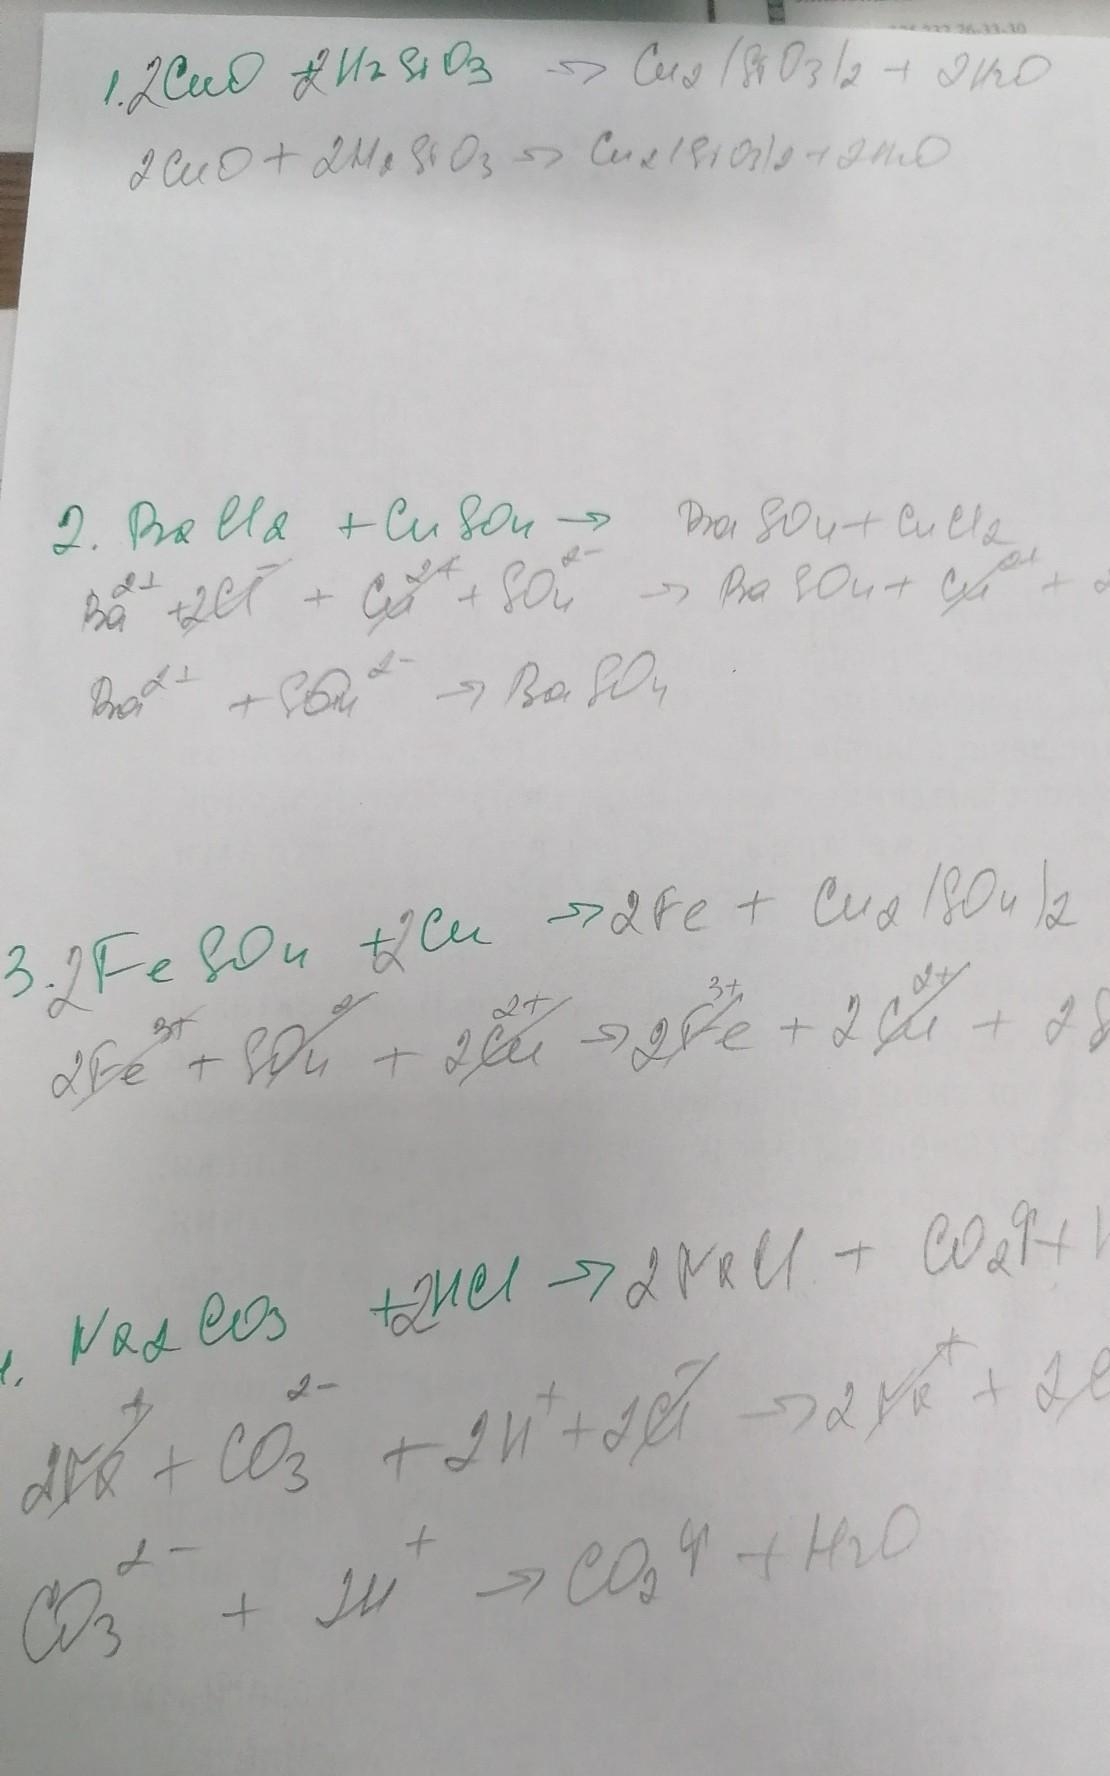 1. 2CuO + 2H2SiO3 → Cu2(SiO3)2 + 2H2O
2CuO + 2H2SiO3 → Cu2(SiO3)2 + 2H2O
2. BaCl2 + CuSO4 → BaSO4 + CuCl2
Ba2+ + 2Cl- + Cu2+ + SO42- → BaSO4 + Cu2+ + 2
Ba2+ + SO42- → BaSO4
3. 2FeSO4 + 2Cu → 2Fe + Cu2(SO4)2
2Fe3+ + SO42- + 2Cu2+ → 2Fe3+ + 2Cu2+ + 2S
Na2CO3 + 2HCl → 2NaCl + CO2↑ + H
2Na+ + CO32- + 2H+ + 2Cl- → 2Na+ + 2C
CO32- + 2H+ → CO2↑ + H2O